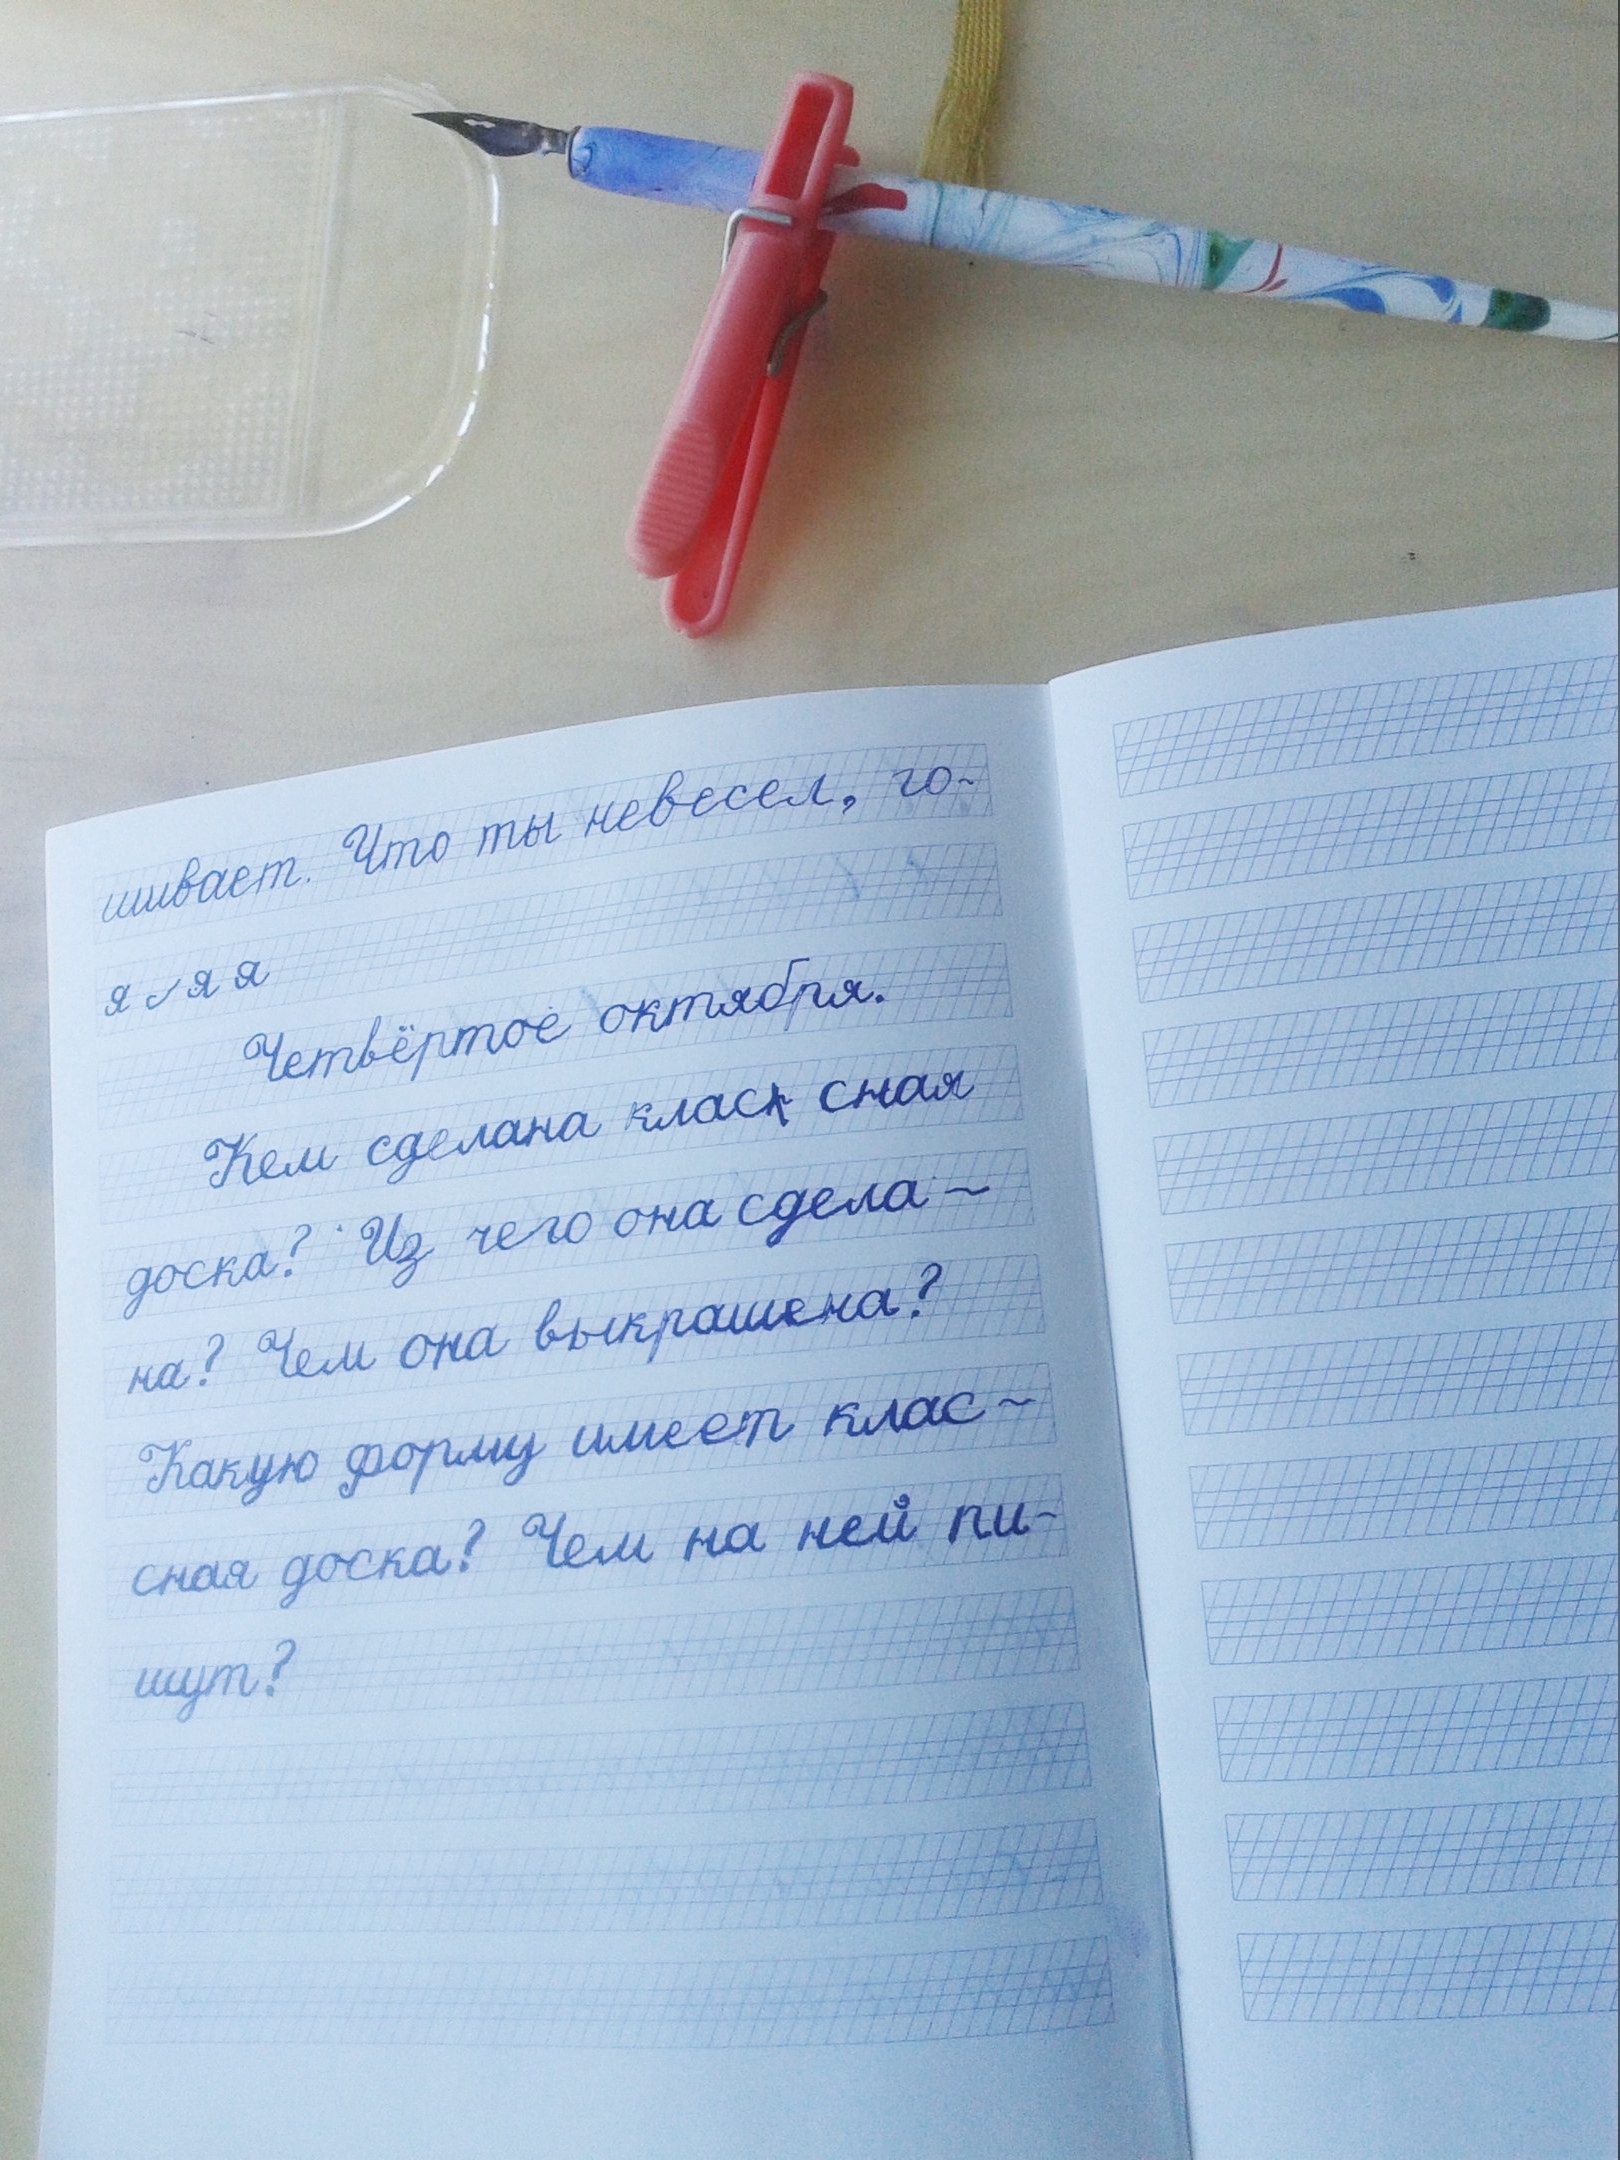 шивает. Что ты невесел, го-
я ~ я я
Четвёртое октября.
Кем сделана класк сная
доска? Из чего она сдела-
на? Чем она выкрашена?
Какую форму имеет клас-
сная доска? Чем на ней пи-
шут?